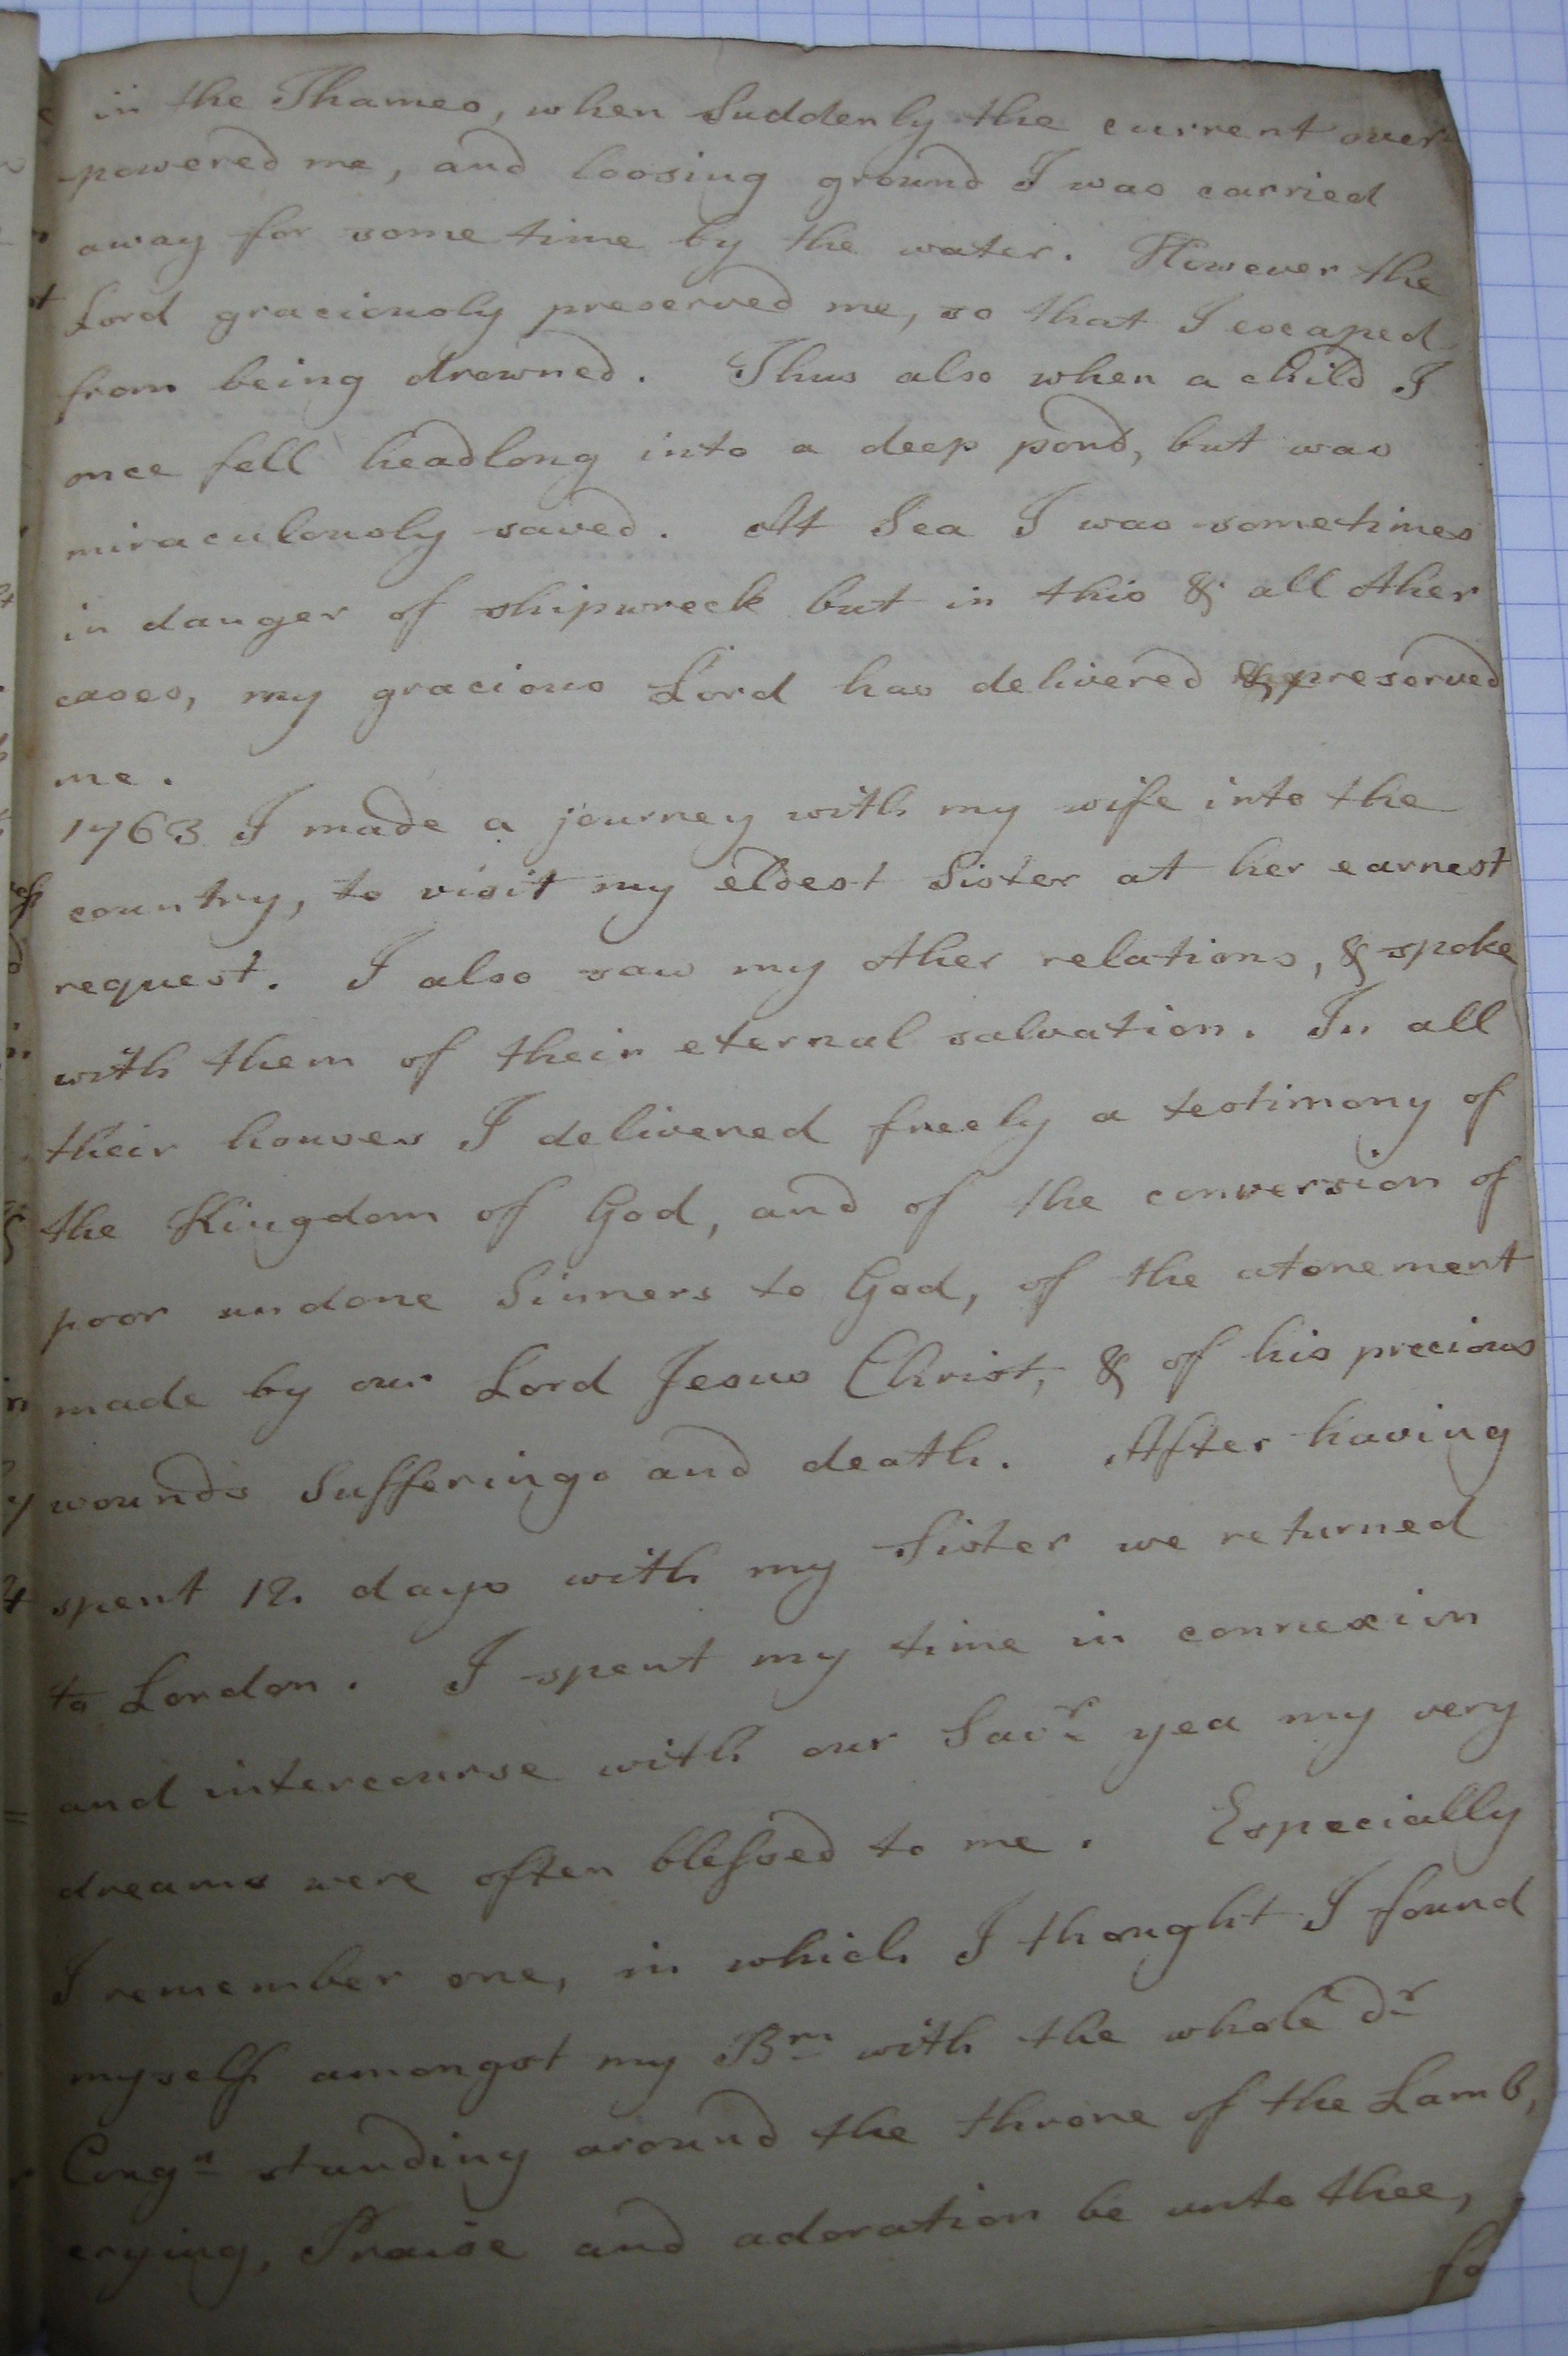 in the Thames, when Suddenly the current over
-powered me, and loosing ground I was carried
away for some time by the water. However the
Lord graciously preserved me, so that I escaped
from being drowned. Thus also when a child I
once fell headlong into a deep pond, but was
miraculously saved. At Sea I was sometimes
in danger of shipwreck but in this & all other
cases, my gracious Lord has delivered & preserved
me.
1763 I made a journey with my wife into the
country, to visit my eldest Sister at her earnest
request. I also saw my other relations, & spoke
with them of their eternal salvation. In all
their houses I delivered freely a testimony of
the Kingdom of God, and of the conversion of
poor undone Sinners to God, of the atonement
made by our Lord Jesus Christ, & of his precious
wounds Sufferings and death. After having
spent 12 days with my Sister we returned
to London. I spent my time in connexion
and intercourse with our Savr yea my very
dreams were often blessed to me. Especially
I remember one, in which I thought I found
myself amongst my Brn with the whole dr
Congn standing around the throne of the Lamb,
crying, Praise and adoration be unto thee,
fo